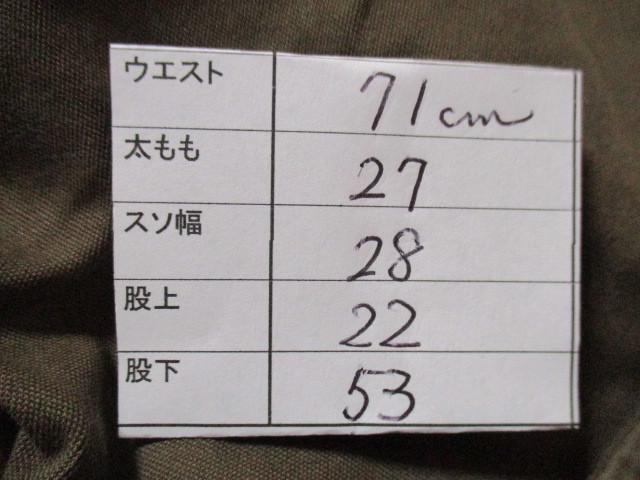 ウエスト 71cm
太もも 27
スソ幅 28
股上 22
股下 53